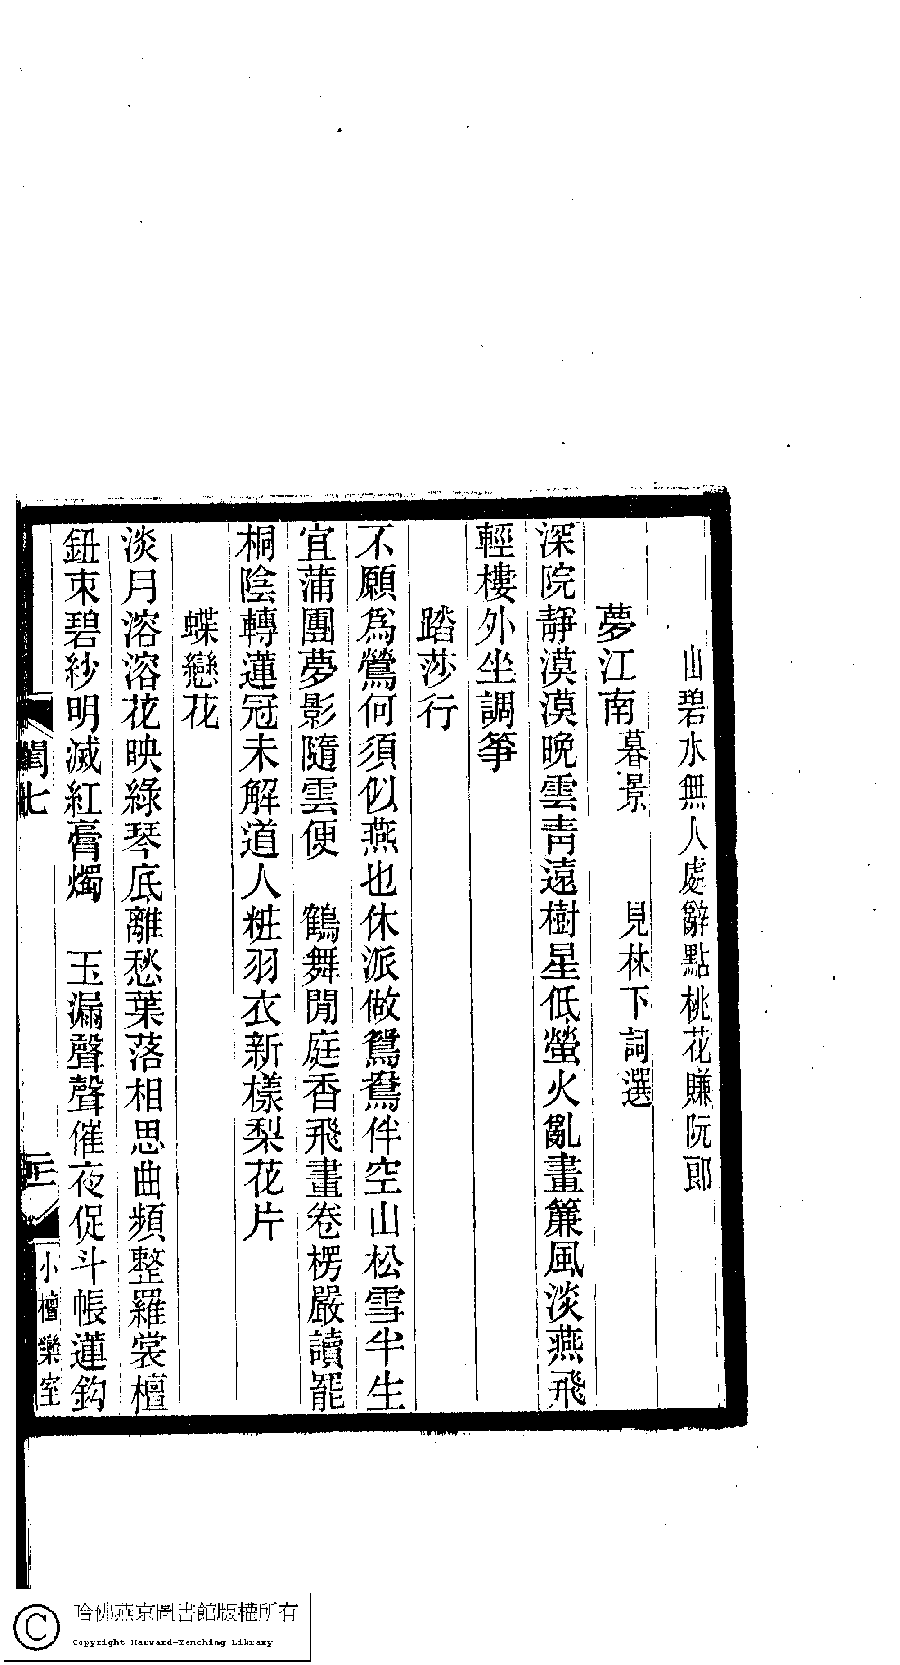 山碧水無人處辭點桃花賺阮郎
夢江南 暮景 見林下詞選
深院靜漠漠晩雲靑遠樹星低螢火亂畫簾風淡燕飛
輕樓外坐調箏
踏莎行
不願爲鶯何須似燕也休派做鴛鴦伴空山松雪半生
宜蒲團夢影隨雲便 鶴舞閒庭香飛畫卷楞嚴讀罷
桐陰轉蓮冠未解道人粧羽衣新樣梨花片
蝶戀花
淡月溶溶花映綠琴底離愁葉落相思曲頻整羅裳檀
鈕束碧紗明滅紅膏燭 玉漏聲聲催夜促斗帳蓮鈎
閨七
小檀欒室
哈佛燕京圖書館版權所有
Copyright Harvard-Yenching Library